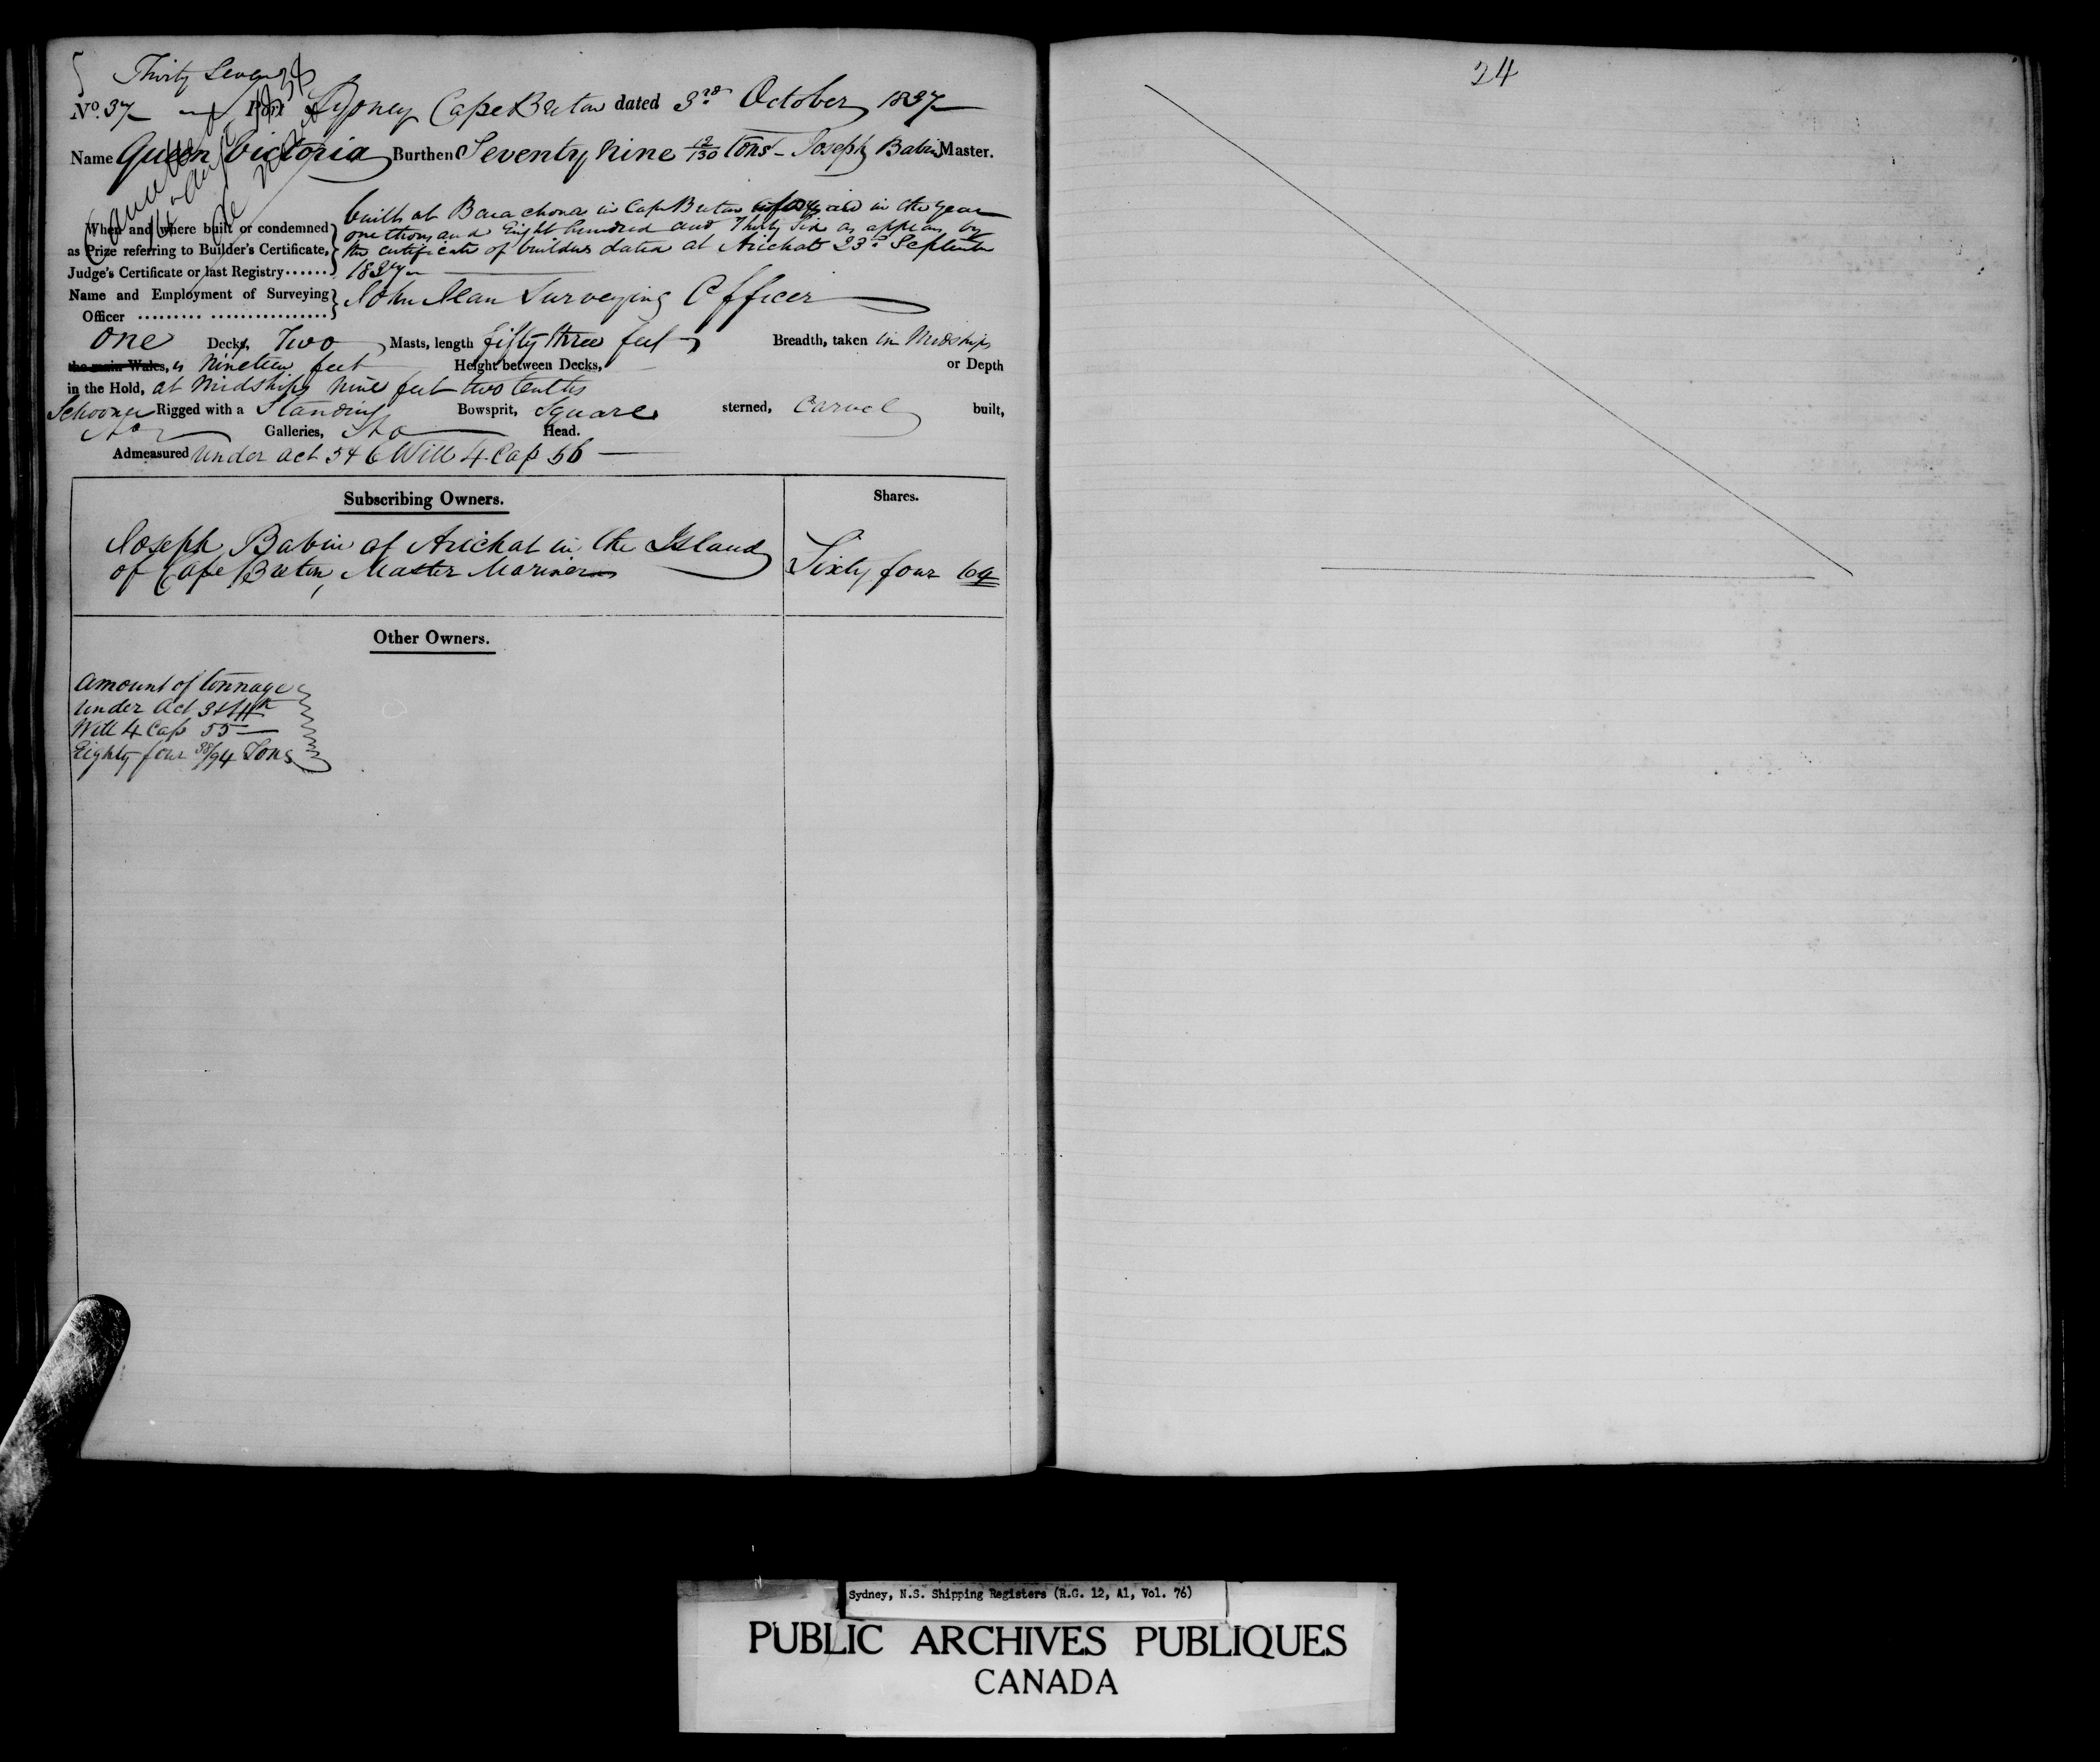 Thirty Seven
No. 37 Port Sydney Cape Breton dated 3rd October 1837
Name Queen Victoria Burthen Seventy Nine 12/130 tons - Joseph Babin Master.
built at Barachois in Cape Breton in the year
When and where built or condemned one thousand Eight hundred and Thirty Six as appears by
as Prize referring to Builder's Certificate, the certificate of builder dated at Arichat 23d September
Judge's Certificate or last Registry...... 1837
Name and Employment of Surveying John Jean Surveying Officer
Officer ......... .................
One Decks, Two Masts, length fifty three feet Breadth, taken in Midships
the main Wales, is Nineteen feet Height between Decks, or Depth
in the Hold, at Midships Nine feet two tenths
Schooner Rigged with a Standing Bowsprit, Square sterned, Carvel built,
No Galleries, No Head.
Admeasured under act 5 & 6 Will 4 Cap 56
Subscribing Owners. Shares.
Joseph Babin of Arichat in the Island
of Cape Breton, Master Mariner Sixty four 64
Other Owners.
Amount of tonnage
under Act 3 & 4th
Will 4 Cap 55
Eighty four 38/94 Tons
24
Sydney, N.S. Shipping Registers (R.G. 12, A1, Vol. 76)
PUBLIC ARCHIVES PUBLIQUES
CANADA